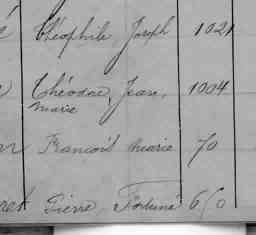 Théophile Joseph 1021
Théodore, Jean, 1004
marie
François marie 70
Pierre Fortuné 650